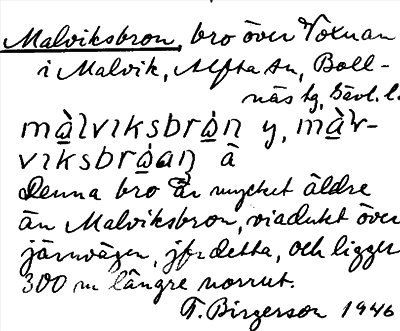 Malviksbron, bro över Voxnan
i Malvik, Alfta sn, Boll-
näs tg, Gävl. l.
màlviksbròn y, màlv-
viksbròaŋ ä
Denna bro är mycket äldre
än Malviksbron, viadukt över
järnvägen, jfr detta, och ligger
300 m längre norrut.
T. Birgerson 1946